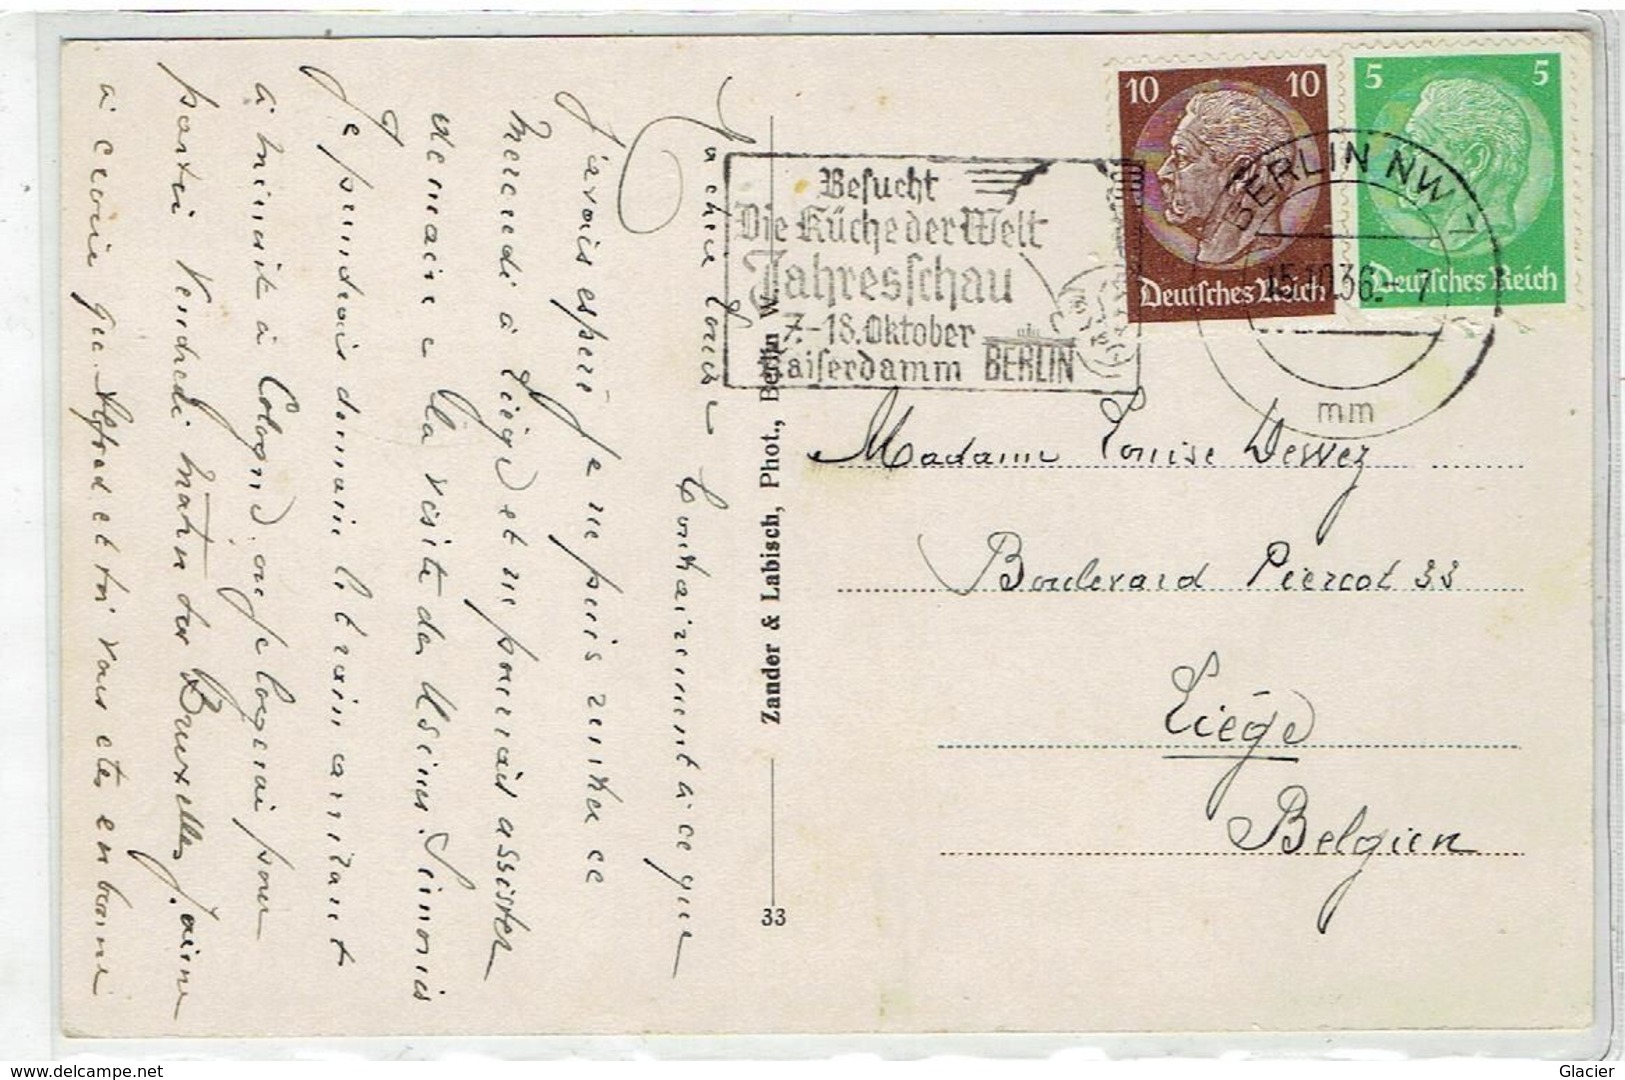 Ma chère Louise
Contrairement à ce que
j'avais espéré je ne puis rentrer ce
Mercredi à Liège et ne pourrais assister
demain à la visite des Usines.
Je prendrais demain le train arrivant
à minuit à Cologne où je logerai pour
partir Vendredi matin sur Bruxelles. J'aime
à croire que Alfred et toi vous etes en bonne
Zander & Labisch, Phot., Berlin W.
33
Besucht
Die Küche der Welt
Jahresschau
7.-18. Oktober
Kaiserdamm BERLIN
10 10
Deutsches Reich
5 5
Deutsches Reich
BERLIN NW 7
15.10.36.- 7
mm
Madame Louise Dewez
Boulevard Piercot 33
Liége
Belgien
www.delcampe.net
Glacier